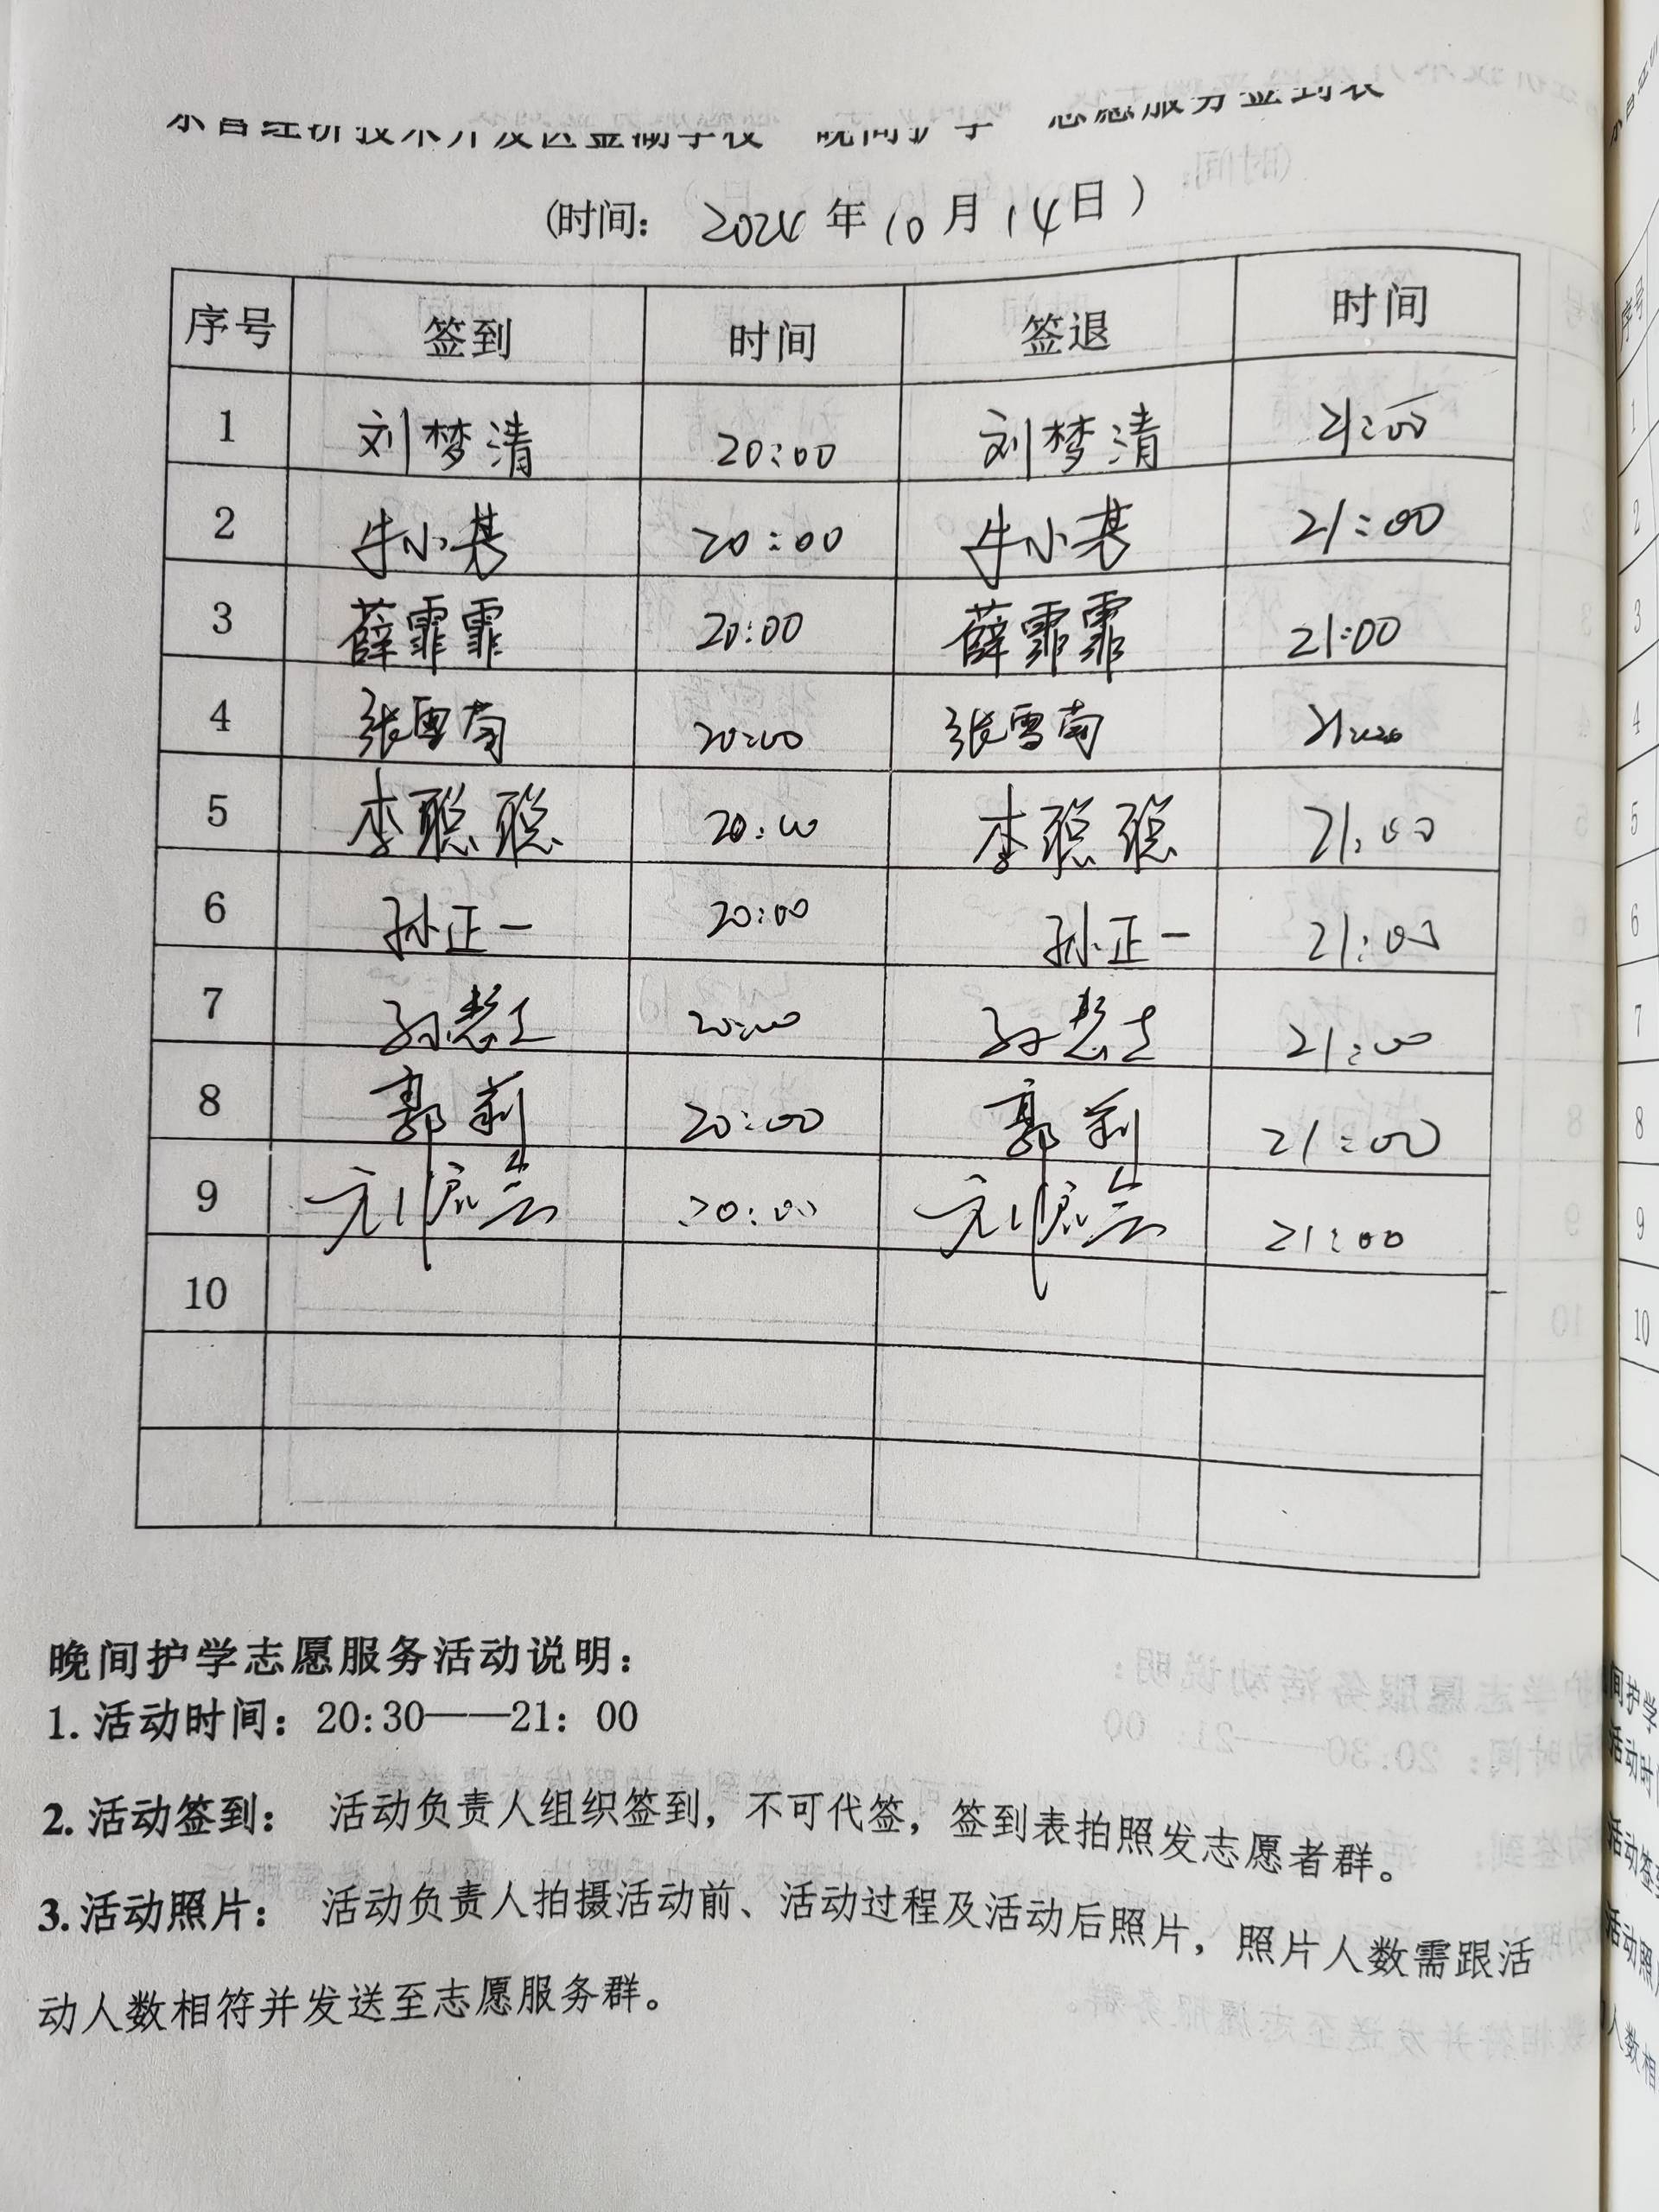 经济技术开发区金湖学校 晚间护学 志愿服务签到表
(时间: 2024年10月14日)
序号 签到 时间 签退 时间
1 刘梦清 20:00 刘梦清 21:00
2 牛小 20:00 牛小 21:00
3 薛霏霏 20:00 薛霏霏 21:00
4 张雪南 20:00 张雪南
5 李聪聪 20:00 李聪聪 21:00
6 孙正一 20:00 孙正一 21:00
7 20:00 21:00
8 郭莉 20:00 郭莉 21:00
9 20:00 21:00
10
晚间护学志愿服务活动说明:
1. 活动时间: 20:30——21: 00
2. 活动签到: 活动负责人组织签到，不可代签，签到表拍照发志愿者群。
3. 活动照片: 活动负责人拍摄活动前、活动过程及活动后照片，照片人数需跟活
动人数相符并发送至志愿服务群。